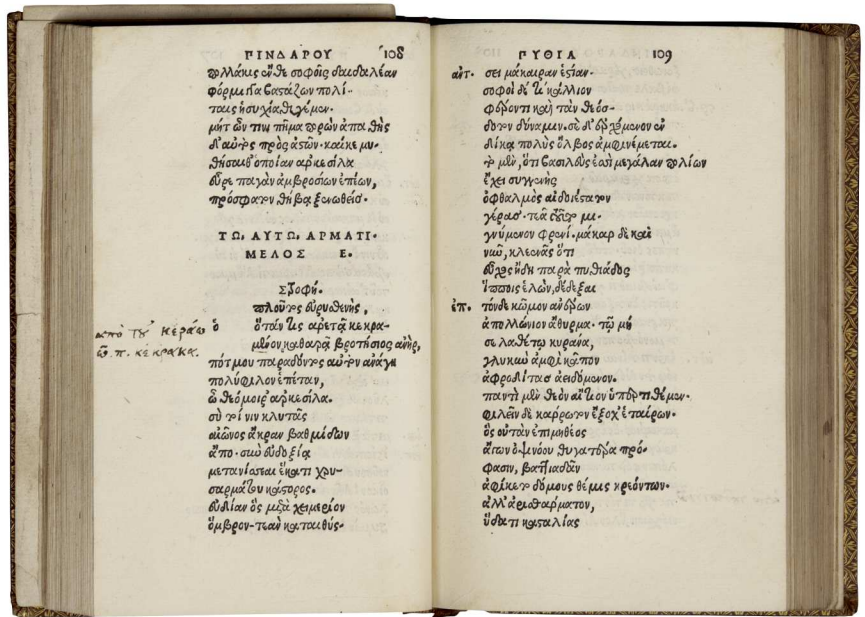 ΠΙΝΔΑΡΟΥ 108
πολλάκις ἐν δὲ σοφοῖς δαιδαλέαν
φόρμιγγα βαστάζων πολί-
ταις ἡσυχίᾳ θιγέμεν.
μήτ' ὦν τινι πῆμα πορὼν ἀπαθὴς
δ' αὐτὸς πρὸς ἀστῶν· καί κε μυ-
θήσαιθ' ὁποίαν ἀρκεσίλα
εὗρε παγὰν ἀμβροσίων ἐπέων,
πρόσφατον θήβᾳ ξενωθείς.
ΤΩ, ΑΥΤΩ, ΑΡΜΑΤΙ.
ΜΕΛΟΣ Ε.
Στροφή.
πλοῦτος εὐρυσθενὴς,
ὁ
ὅτάν τις ἀρετᾷ κεκρα-
μένον καθαρᾷ βροτήσιος ἀνὴρ,
πότμου παραδόντος αὐτὸν ἀνάγῃ
πολύφιλον ἑπέταν,
ὦ θεόμοιρ' ἀρκεσίλα.
σύ τοί νιν κλυτᾶς
αἰῶνος ἄκραν βαθμίδων
ἄπο· σὺν εὐδοξίᾳ
μετανίσεαι ἕκατι χρυ-
σαρμάτου κάστορος.
εὐδίαν ὃς μετὰ χειμέριον
ὄμβρον· τεὰν καταιθύσ-
ἀπὸ τοῦ κεράω
π. κέκρακα.
ΠΥΘΙΑ 109
ἀντ. σει μάκαιραν ἑστίαν.
σοφοὶ δέ τι κάλλιον
φέροντι καὶ τὰν θεόσ-
δοτον δύναμιν. σὲ δ' ἐρχόμενον ἐν
δίκᾳ πολὺς ὄλβος ἀμφινέμεται.
τὸ μὲν, ὅτι βασιλεὺς ἐσσὶ μεγάλαν πολίων
ἔχει συγγενὴς
ὀφθαλμὸς αἰδοιέστατον
γέρας· τεᾷ τοῦτο μι-
γνύμενον φρενί. μάκαρ δὲ καὶ
νῦν, κλεεννᾶς ὅτι
εὖχος ἤδη παρὰ πυθιάδος
ἵπποις ἑλὼν, δέδεξαι
ἐπ. τόνδε κῶμον ἀνδρῶν
ἀπολλώνιον ἄθυρμα· τῷ μή
σε λαθέτω κυράνα,
γλυκὺν ἀμφὶ κᾶπον
ἀφροδίτας ἀειδόμενον.
παντὶ μὲν θεὸν αἴτιον ὑπερτιθέμεν.
φιλεῖν δὲ κάρρωτον ἔξοχ' ἑταίρων.
ὃς οὐ τὰν ἐπιμηθέος
ἄγων ὀψινόου θυγατέρα πρό-
φασιν, βαττιαδᾶν
ἀφίκετο δόμους θεμισκρεόντων.
ἀλλ' ἀρισθάρματον,
ὕδατι κασταλίας